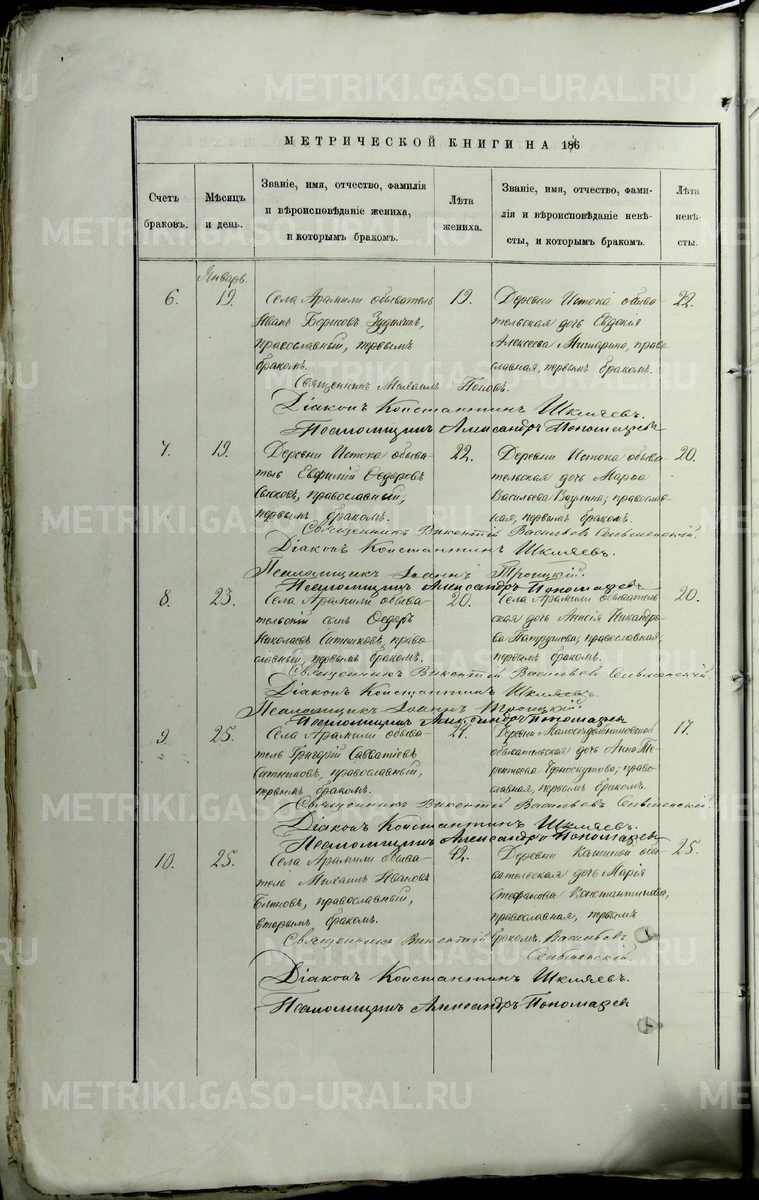 МЕТРИЧЕСКОЙ КНИГИ НА 1876
Счетъ браковъ.
Мѣсяцъ и день.
Званіе, имя, отчество, фамилія
и вѣроисповѣданіе жениха,
и которымъ бракомъ.
Лѣта жениха.
Званіе, имя, отчество, фами-
лія и вѣроисповѣданіе невѣ-
сты, и которымъ бракомъ.
Лѣта невѣ-
сты.
Январь.
6.
19.
Села Арамили обыватель
Иванъ Борисовъ
православный, первымъ
бракомъ.
19.
Деревни Истока обыва-
тельская дочь Евдокія
Алексѣева Мишарина, право-
славная, первымъ бракомъ.
22.
Священникъ Михаилъ Поповъ.
Діаконъ Константинъ Шкляевъ.
Псаломщикъ Александръ Пономаревъ
7.
19.
Деревни Истока обыва-
тель Евфимій Ѳедоровъ
православный,
первымъ бракомъ.
22.
Деревни Истока обыва-
тельская дочь Марѳа
Василеева православ-
ная, первымъ бракомъ.
20.
Священникъ Викентій Васильевъ Сельменскій.
Діаконъ Константинъ Шкляевъ.
Псаломщикъ Іоаннъ Троицкій.
Псаломщикъ Александръ Пономаревъ
8.
23.
Села Арамили обыва-
тельскій сынъ Ѳедоръ
Николаевъ Ситниковъ, право-
славный, первымъ бракомъ.
20.
Села Арамили обыватель-
ская дочь Анисія Никандро-
ва Патрушева, православная,
первымъ бракомъ.
20.
Священникъ Викентій Васильевъ Сельменскій.
Діаконъ Константинъ Шкляевъ.
Псаломщикъ Іоаннъ Троицкій.
Псаломщикъ Александръ Пономаревъ
9.
25.
Села Арамили обыва-
тель Григорій Савватіевъ
Ситниковъ, православный,
первымъ бракомъ.
Деревни
обывательская дочь Анна Те-
рентьева Черноскутова, право-
славная, первымъ бракомъ.
17.
Священникъ Викентій Васильевъ Сельменскій.
Діаконъ Константинъ Шкляевъ.
Псаломщикъ Александръ Пономаревъ
10.
25.
Села Арамили обыва-
тель Михаилъ Ивановъ
православный,
вторымъ бракомъ.
42.
Деревни Кашиной обы-
вательская дочь Марія
Стефанова Константинова,
православная, первымъ
бракомъ.
25.
Священникъ Викентій Васильевъ
Сельменскій.
Діаконъ Константинъ Шкляевъ.
Псаломщикъ Александръ Пономаревъ
METRIKI.GASO-URAL.RU